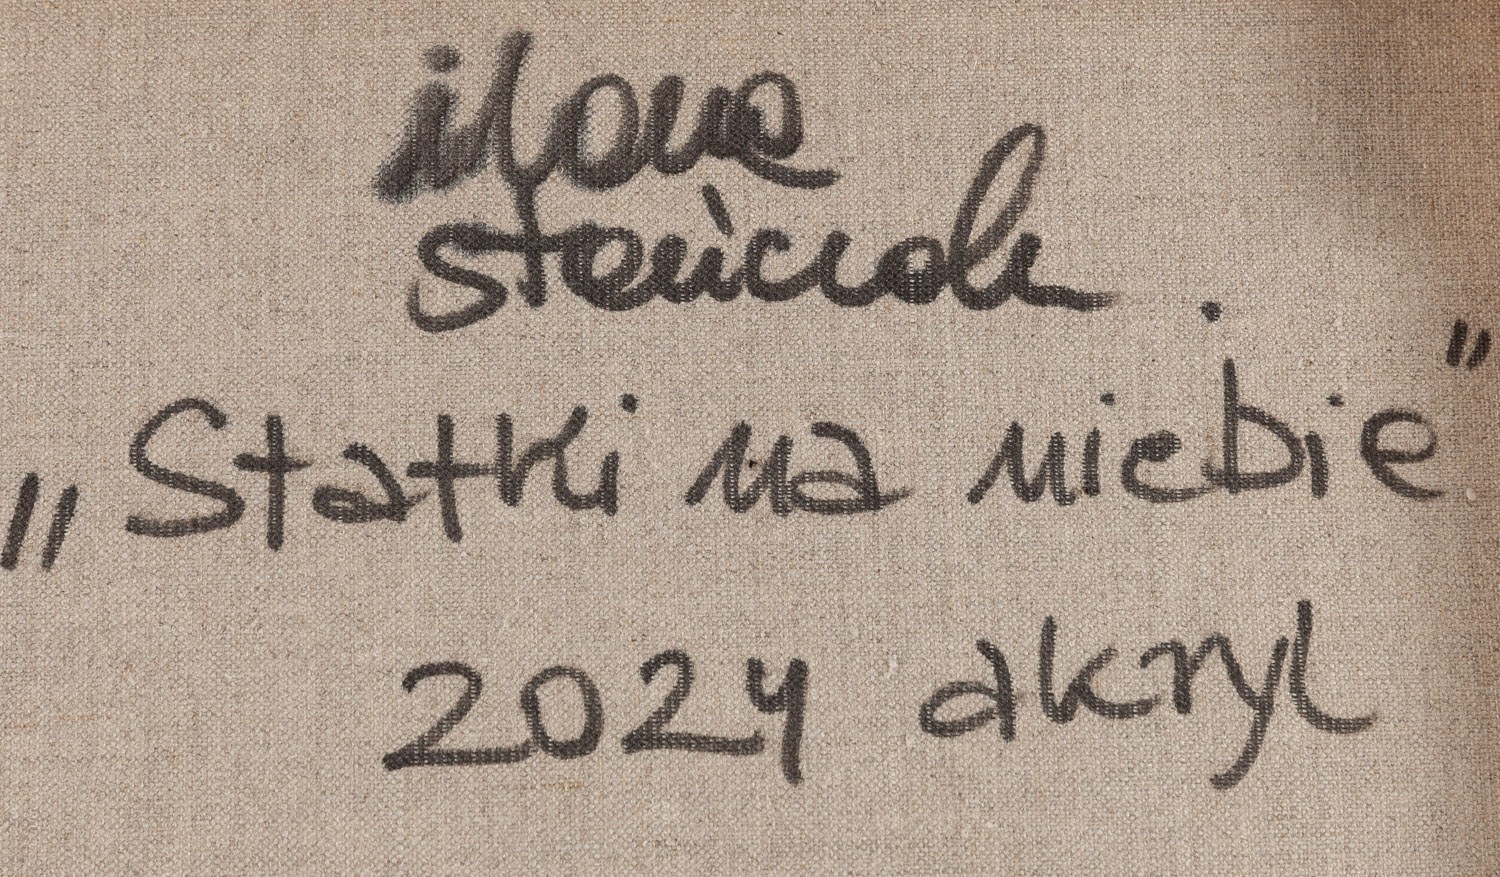 ilona
stańczak
„Statki na niebie”
2024 akryl